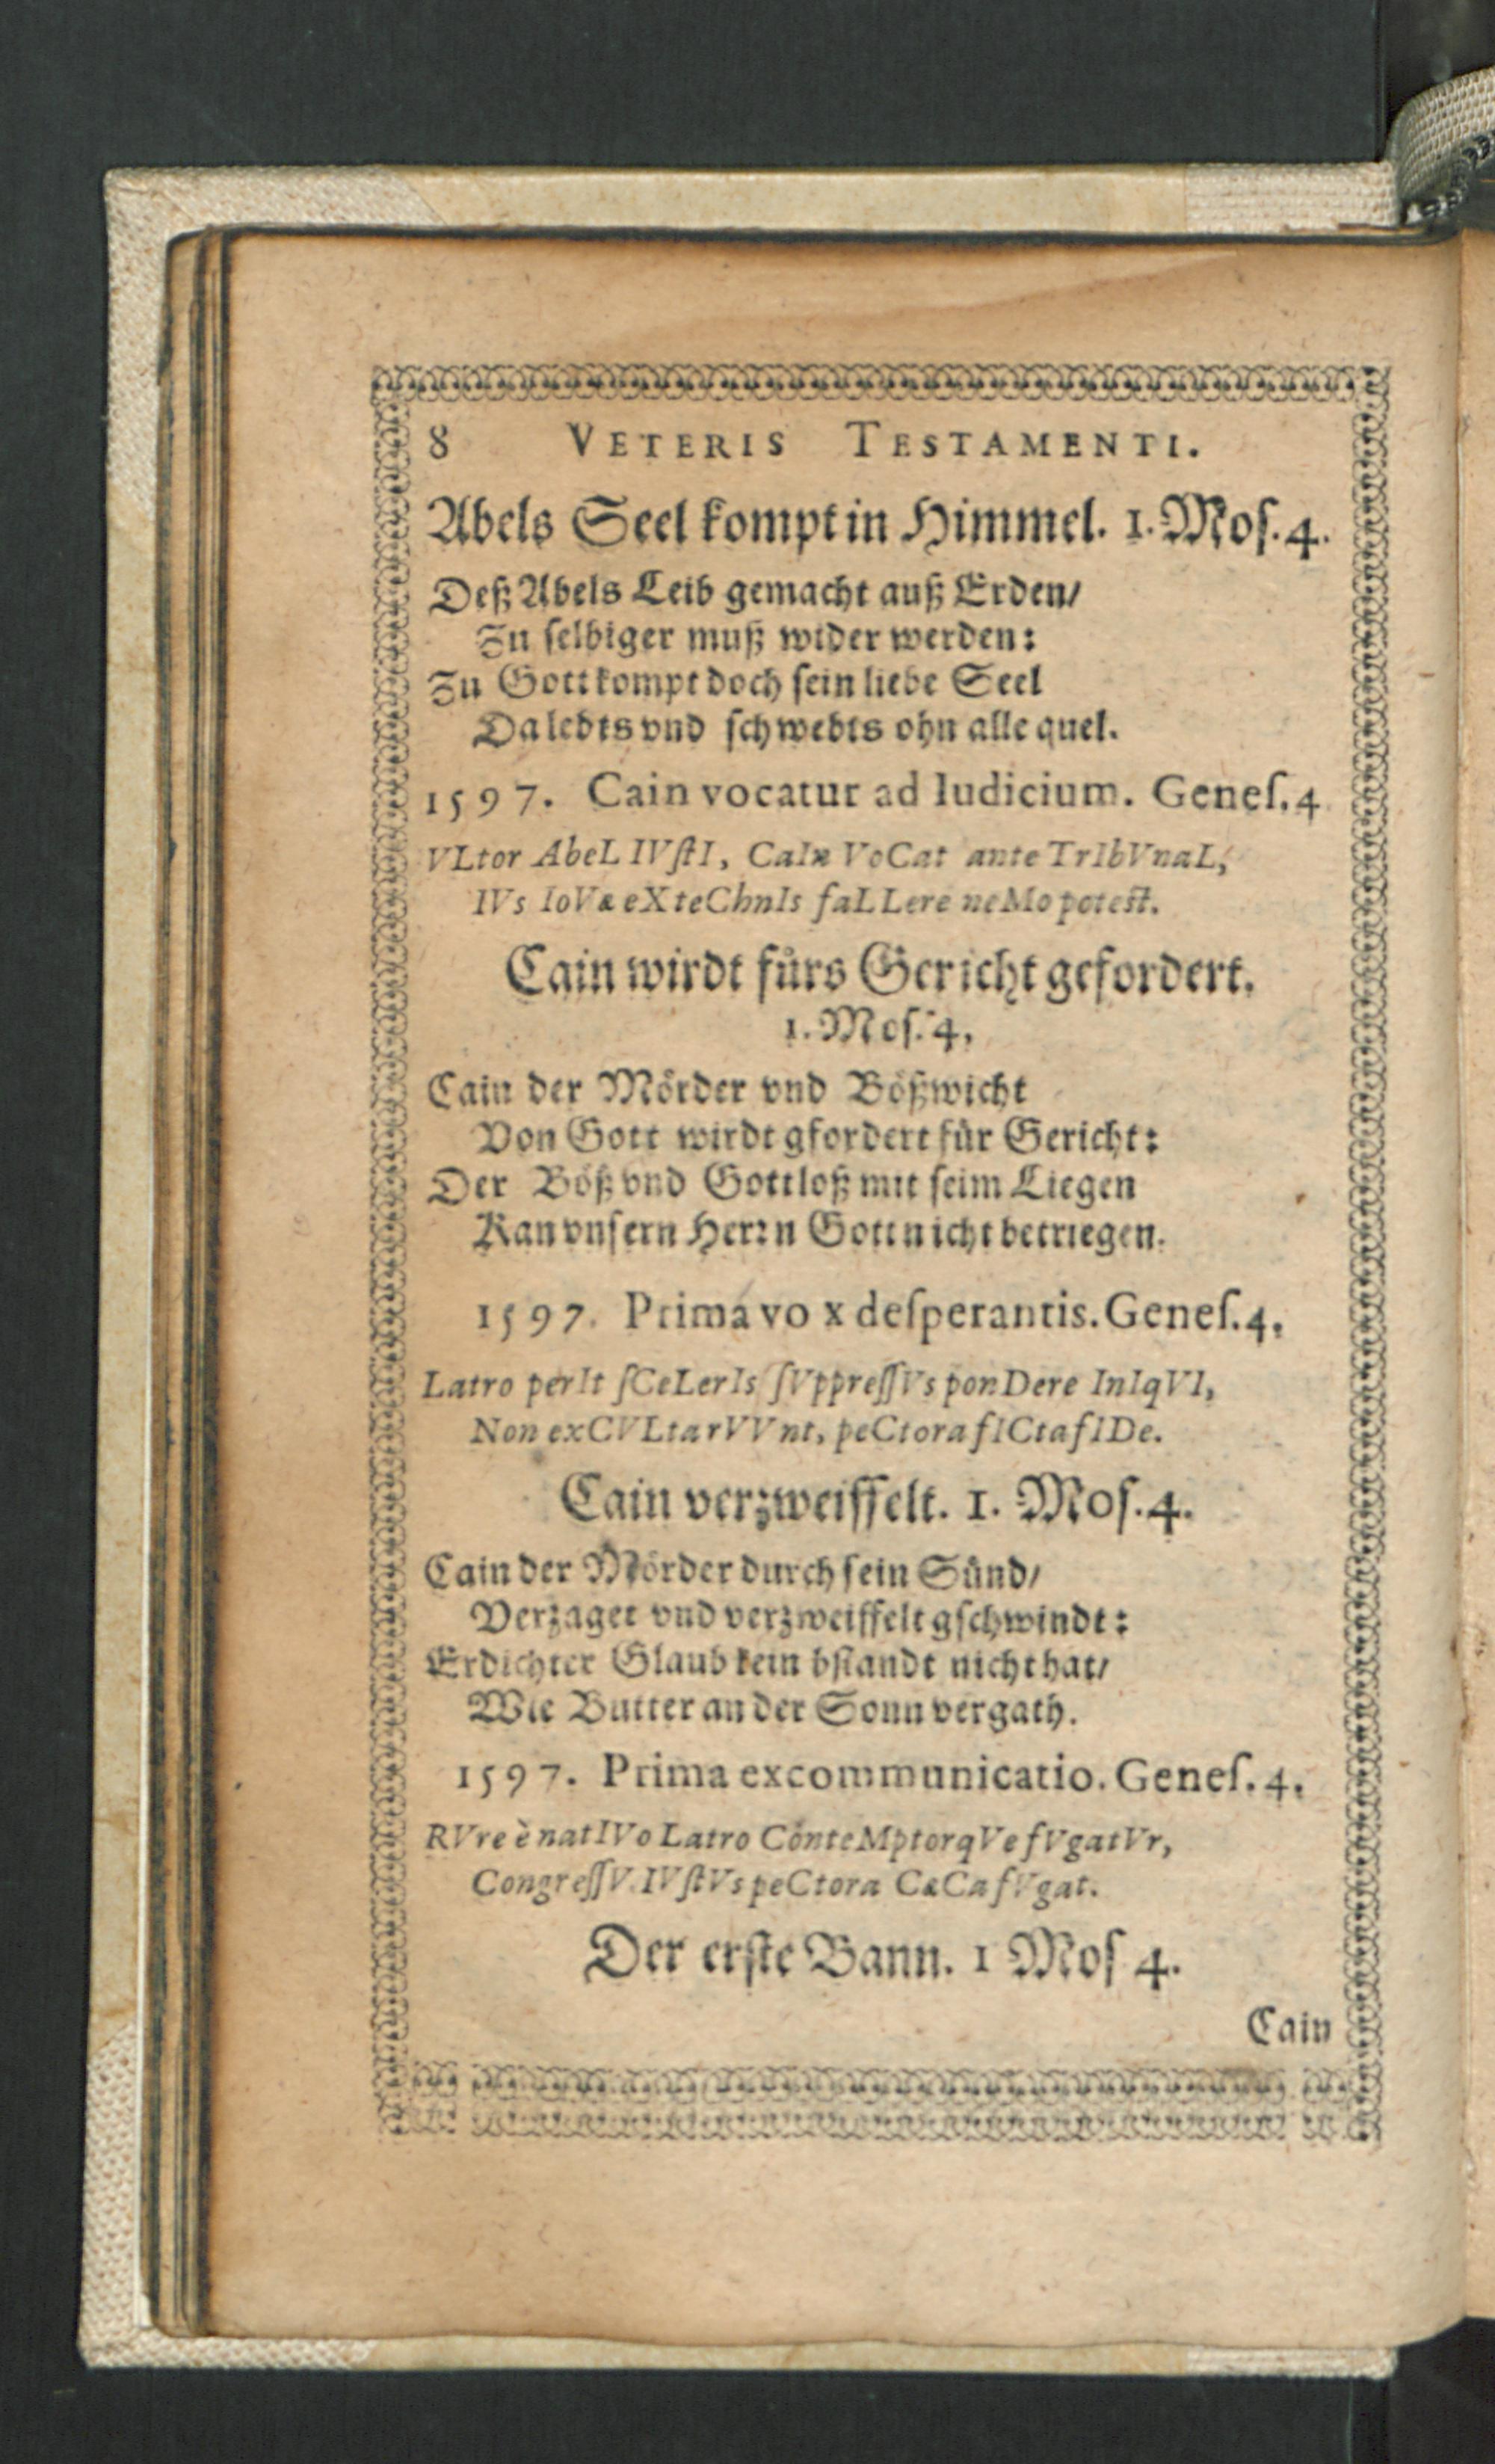 8 VETERIS TESTAMENTI.
Abels Seel kompt in Himmel. 1. Moſ. 4.
Deß Abels Leib gemacht auß Erden/
Zu ſelbiger muß wider werden:
Zu Gott kompt doch ſein liebe Seel
Da lebts vnd ſchwebts ohn alle quel.
1597. Cain vocatur ad Iudicium. Geneſ. 4
VLtor AbeL IVſtI, CaIn VoCat ante TrIbVnaL,
IVs IoVæ eX teChnIs faLLere neMo poteſt.
Cain wirdt fürs Gericht gefordert.
1. Moſ. 4,
Cain der Mörder vnd Bößwicht
Von Gott wirdt gfordert für Gericht:
Der Böß vnd Gottloß mit ſeim Liegen
Kan vnſern Herrn Gott nicht betriegen.
1597. Prima vo x deſperantis. Geneſ. 4.
Latro perIt ſCeLerIs ſVppreſſVs ponDere InIqVI,
Non exCVLta rVVnt, peCtora fICta fIDe.
Cain verzweiffelt. 1. Moſ. 4.
Cain der Mörder durch ſein Sünd/
Verzaget vnd verzweiffelt gſchwindt:
Erdichter Glaub kein bſtandt nicht hat/
Wie Butter an der Sonn vergath.
1597. Prima excommunicatio. Geneſ. 4.
RVre è natIVo Latro ConteMptorqVe fVgatVr,
CongreſſV IVſtVs peCtora CæCa fVgat.
Der erſte Bann. 1 Moſ 4.
Cain